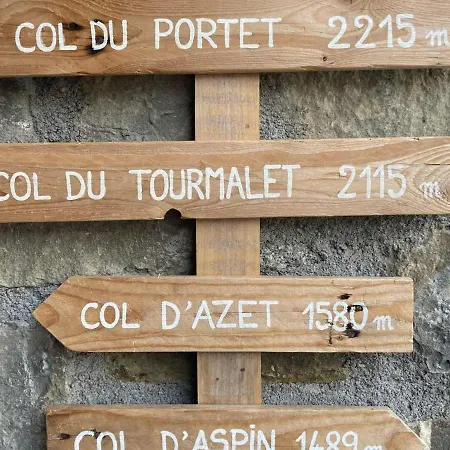 COL DU PORTET 2215 m
COL DU TOURMALET 2115 m
COL D'AZET 1580 m
COL D'ASPIN 1489 m